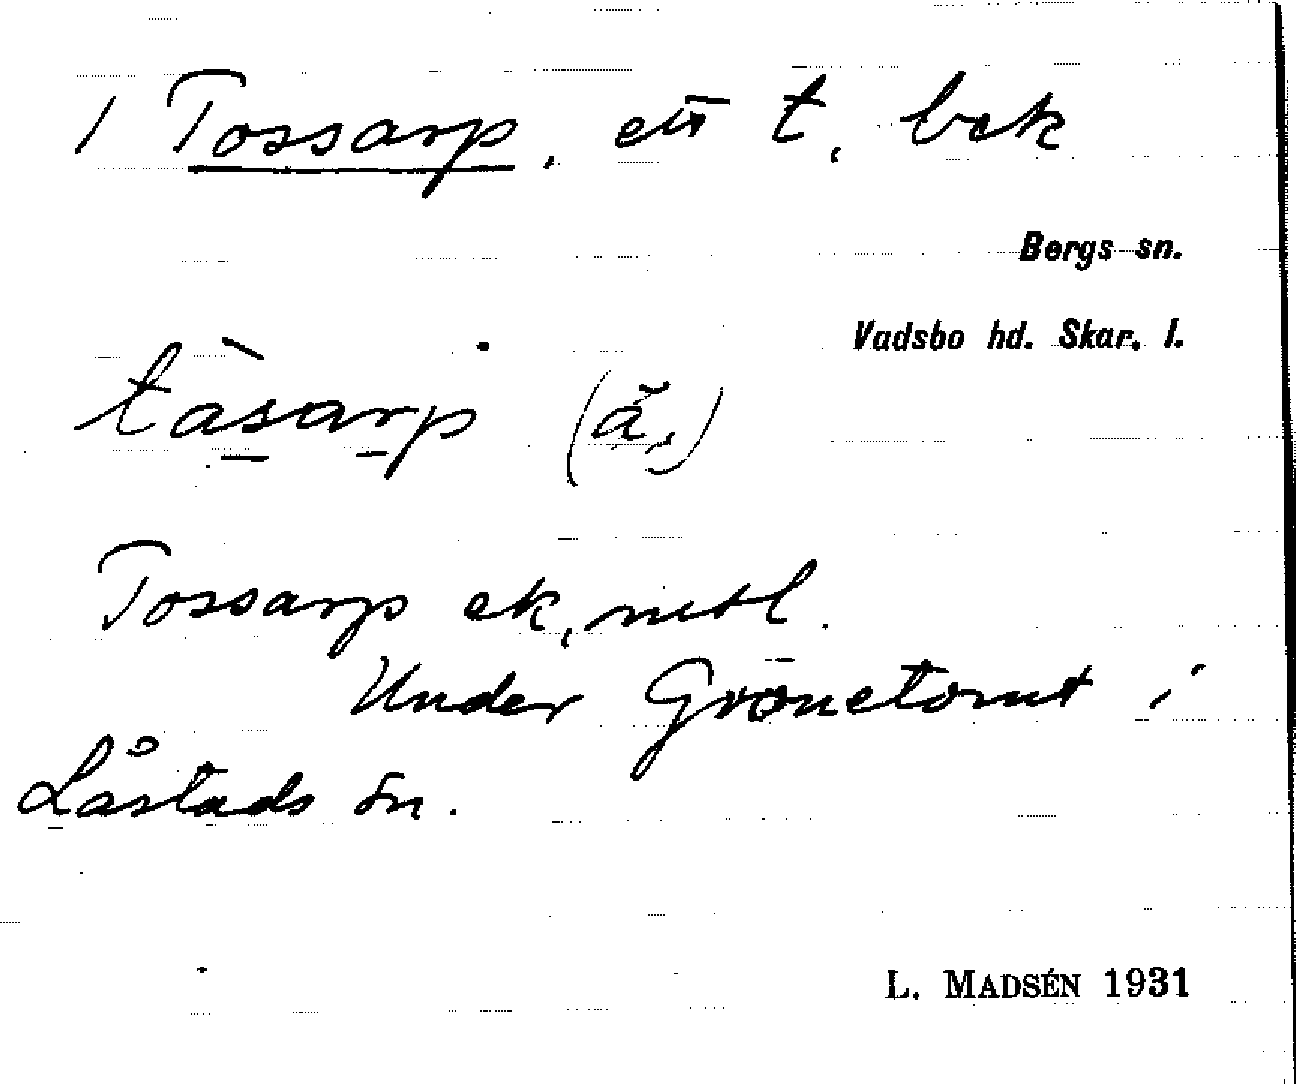 1 Tossarp, ett t, bek
Bergs sn.
Vadsbo hd. Skar. l.
tàsarp (ă,)
Tossarp ek, mtl.
Under Grönetomt i
Låstads sn.
L. MADSÉN 1931